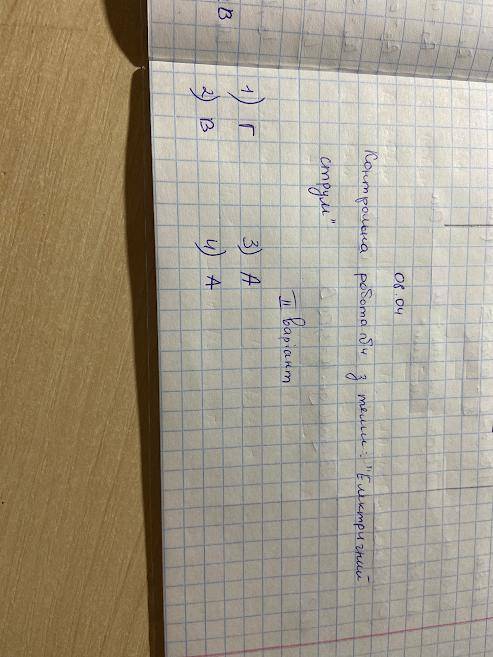 08.04
Контрольна робота №4 з теми: "Електричний
струм"
II варіант
1) Г 3) А
2) В 4) А
В